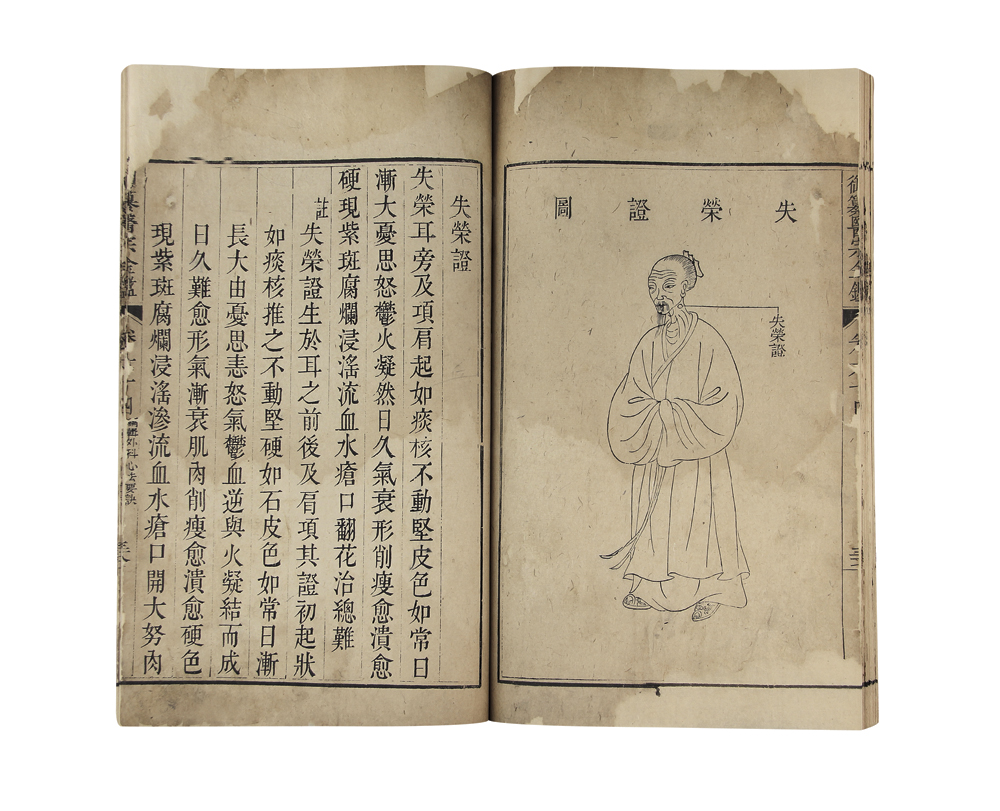 御纂醫宗金鑑
失榮證圖
失榮證
失榮證
失榮耳旁及項肩起如痰核不動堅皮色如常日
漸大憂思怒鬱火凝然日久氣衰形削瘦愈潰愈
硬現紫斑腐爛浸滛流血水瘡口翻花治總難
註失榮證生於耳之前後及肩項其證初起狀
如痰核推之不動堅硬如石皮色如常日漸
長大由憂思恚怒氣鬱血逆與火凝結而成
日久難愈形氣漸衰肌肉削瘦愈潰愈硬色
現紫斑腐爛浸滛滲流血水瘡口開大努肉
纂醫宗金鑑
卷
編輯外科心法要訣